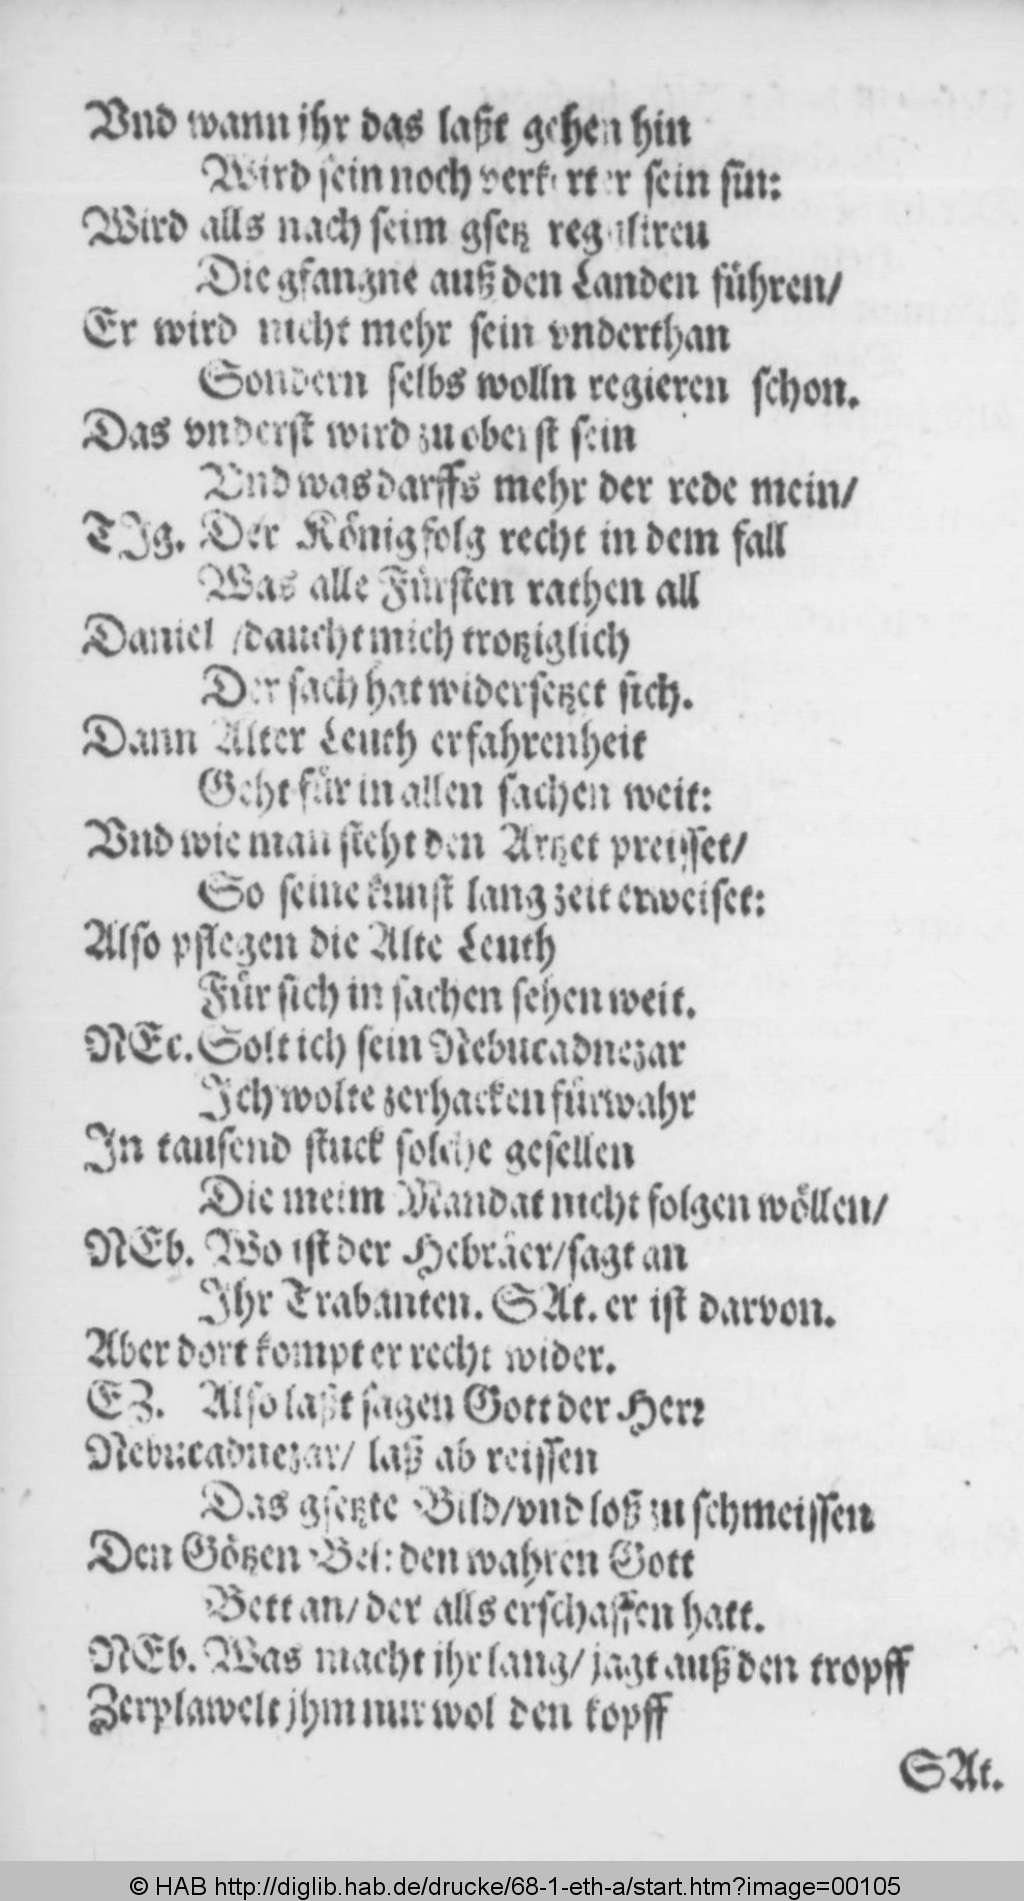 Vnd wann jhr das laßt gehen hin
Wird sein noch verkerter sein sin:
Wird alls nach seim gsetz reguliren
Die gfangne auß den Landen führen/
Er wird nicht mehr sein vnderthan
Sondern selbs wolln regieren schon.
Das vnderst wird zu oberst sein
Vnd was darffs mehr der rede mein/
TIg. Der König folg recht in dem fall
Was alle Fürsten rathen all
Daniel /daucht mich trotziglich
Der sach hat widersetzet sich.
Dann Alter Leuth erfahrenheit
Geht für in allen sachen weit:
Vnd wie man sieht den Artzet preisset/
So seine kunst lang zeit erweiset:
Also pflegen die Alte Leuth
Für sich in sachen sehen weit.
NEc. Solt ich sein Nebucadnezar
Ich wolte zerhacken fürwahr
In tausend stuck solche gesellen
Die meim Mandat nicht folgen wöllen/
NEb. Wo ist der Hebräer/sagt an
Ihr Trabanten. SAt. er ist darvon.
Aber dort kompt er recht wider.
EZ. Also laßt sagen Gott der Herr
Nebucadnezar/ laß ab reissen
Das gsetzte Bild/vnd loß zu schmeissen
Den Götzen Bel: den wahren Gott
Bett an/ der alls erschaffen hatt.
NEb. Was macht jhr lang/ jagt auß den tropff
Zerplawelt jhm nur wol den kopff
SAt.
© HAB http://diglib.hab.de/drucke/68-1-eth-a/start.htm?image=00105